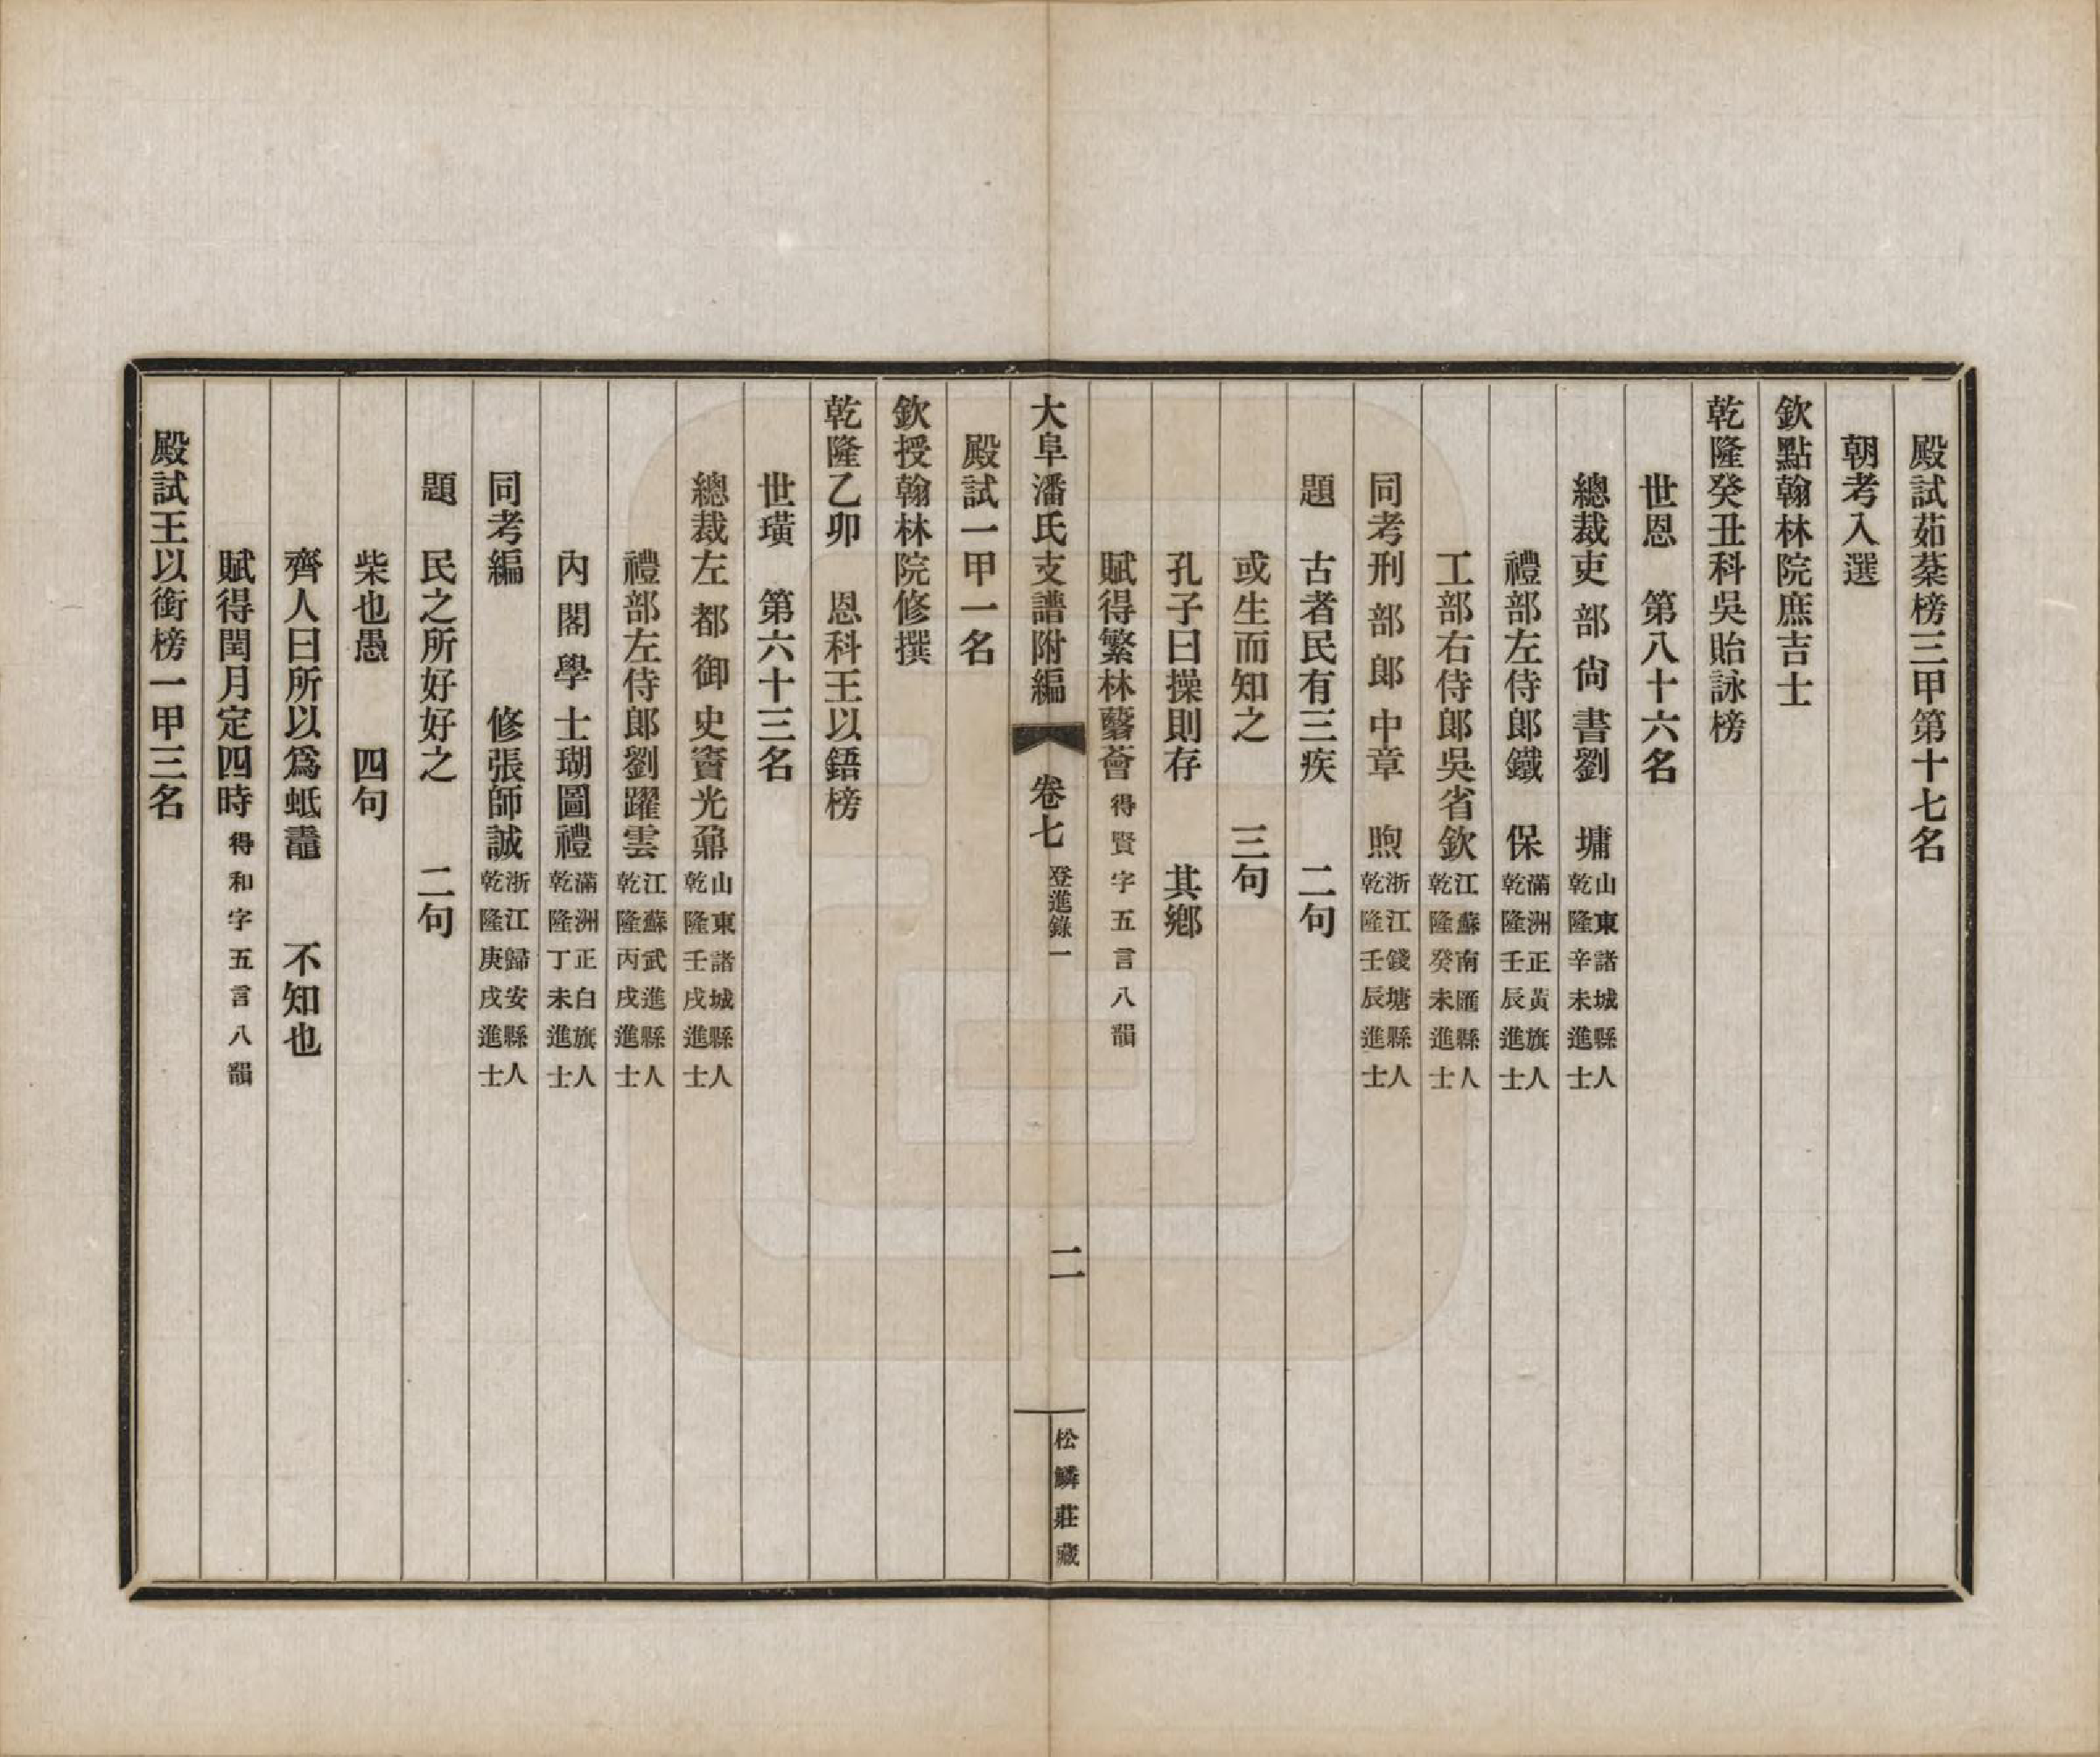 殿試茹棻榜三甲第十七名
朝考入選
欽點翰林院庶吉士
乾隆癸丑科吳貽詠榜
世恩　第八十六名
總裁吏部尙書劉　墉山東諸城縣人乾隆辛未進士
禮部左侍郎鐵　保滿洲正黃旗人乾隆壬辰進士
工部右侍郎吳省欽江蘇南匯縣人乾隆癸未進士
同考刑部郎中章　煦浙江錢塘縣人乾隆壬辰進士
題　古者民有三疾　二句
或生而知之　三句
孔子曰操則存　其鄕
賦得繁林蘙薈得賢字五言八韻
大阜潘氏支譜附編　卷七　登進錄一　二　松鱗莊藏
殿試一甲一名
欽授翰林院修撰
乾隆乙卯　恩科王以鋙榜
世璜　第六十三名
總裁左都御史竇光鼐山東諸城縣人乾隆壬戌進士
禮部左侍郎劉躍雲江蘇武進縣人乾隆丙戌進士
內閣學士瑚圖禮滿洲正白旗人乾隆丁未進士
同考編　修張師誠浙江歸安縣人乾隆庚戌進士
題　民之所好好之　二句
柴也愚　四句
齊人曰所以爲蚳鼃　不知也
賦得閏月定四時得和字五言八韻
殿試王以銜榜一甲三名